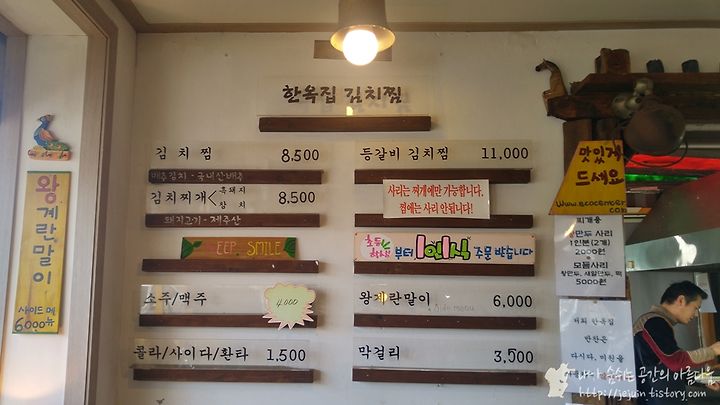 한옥집 김치찜
김치찜 8,500
배추김치 - 국내산배추
김치찌개 < 흑돼지 참치 8,500
돼지고기 - 제주산
KEEP SMILE
소주/맥주 4,000
콜라/사이다/환타 1,500
등갈비 김치찜 11,000
사리는 찌개에만 가능합니다.
찜에는 사리 안됩니다!
초등학생부터 1인1식 주문 받습니다
왕계란말이 6,000
Side menu
막걸리 3,500
왕계란말이
사이드메뉴
6000
맛있게
드세요
www.ecocenter
찌개용
만두 사리
1인분(2개)
2000원
모듬사리
5000원
저희 한옥집
반찬은
다시다, 미원을
나가 숨쉬는 공간의 아름다움
http://jejuin.tistory.com